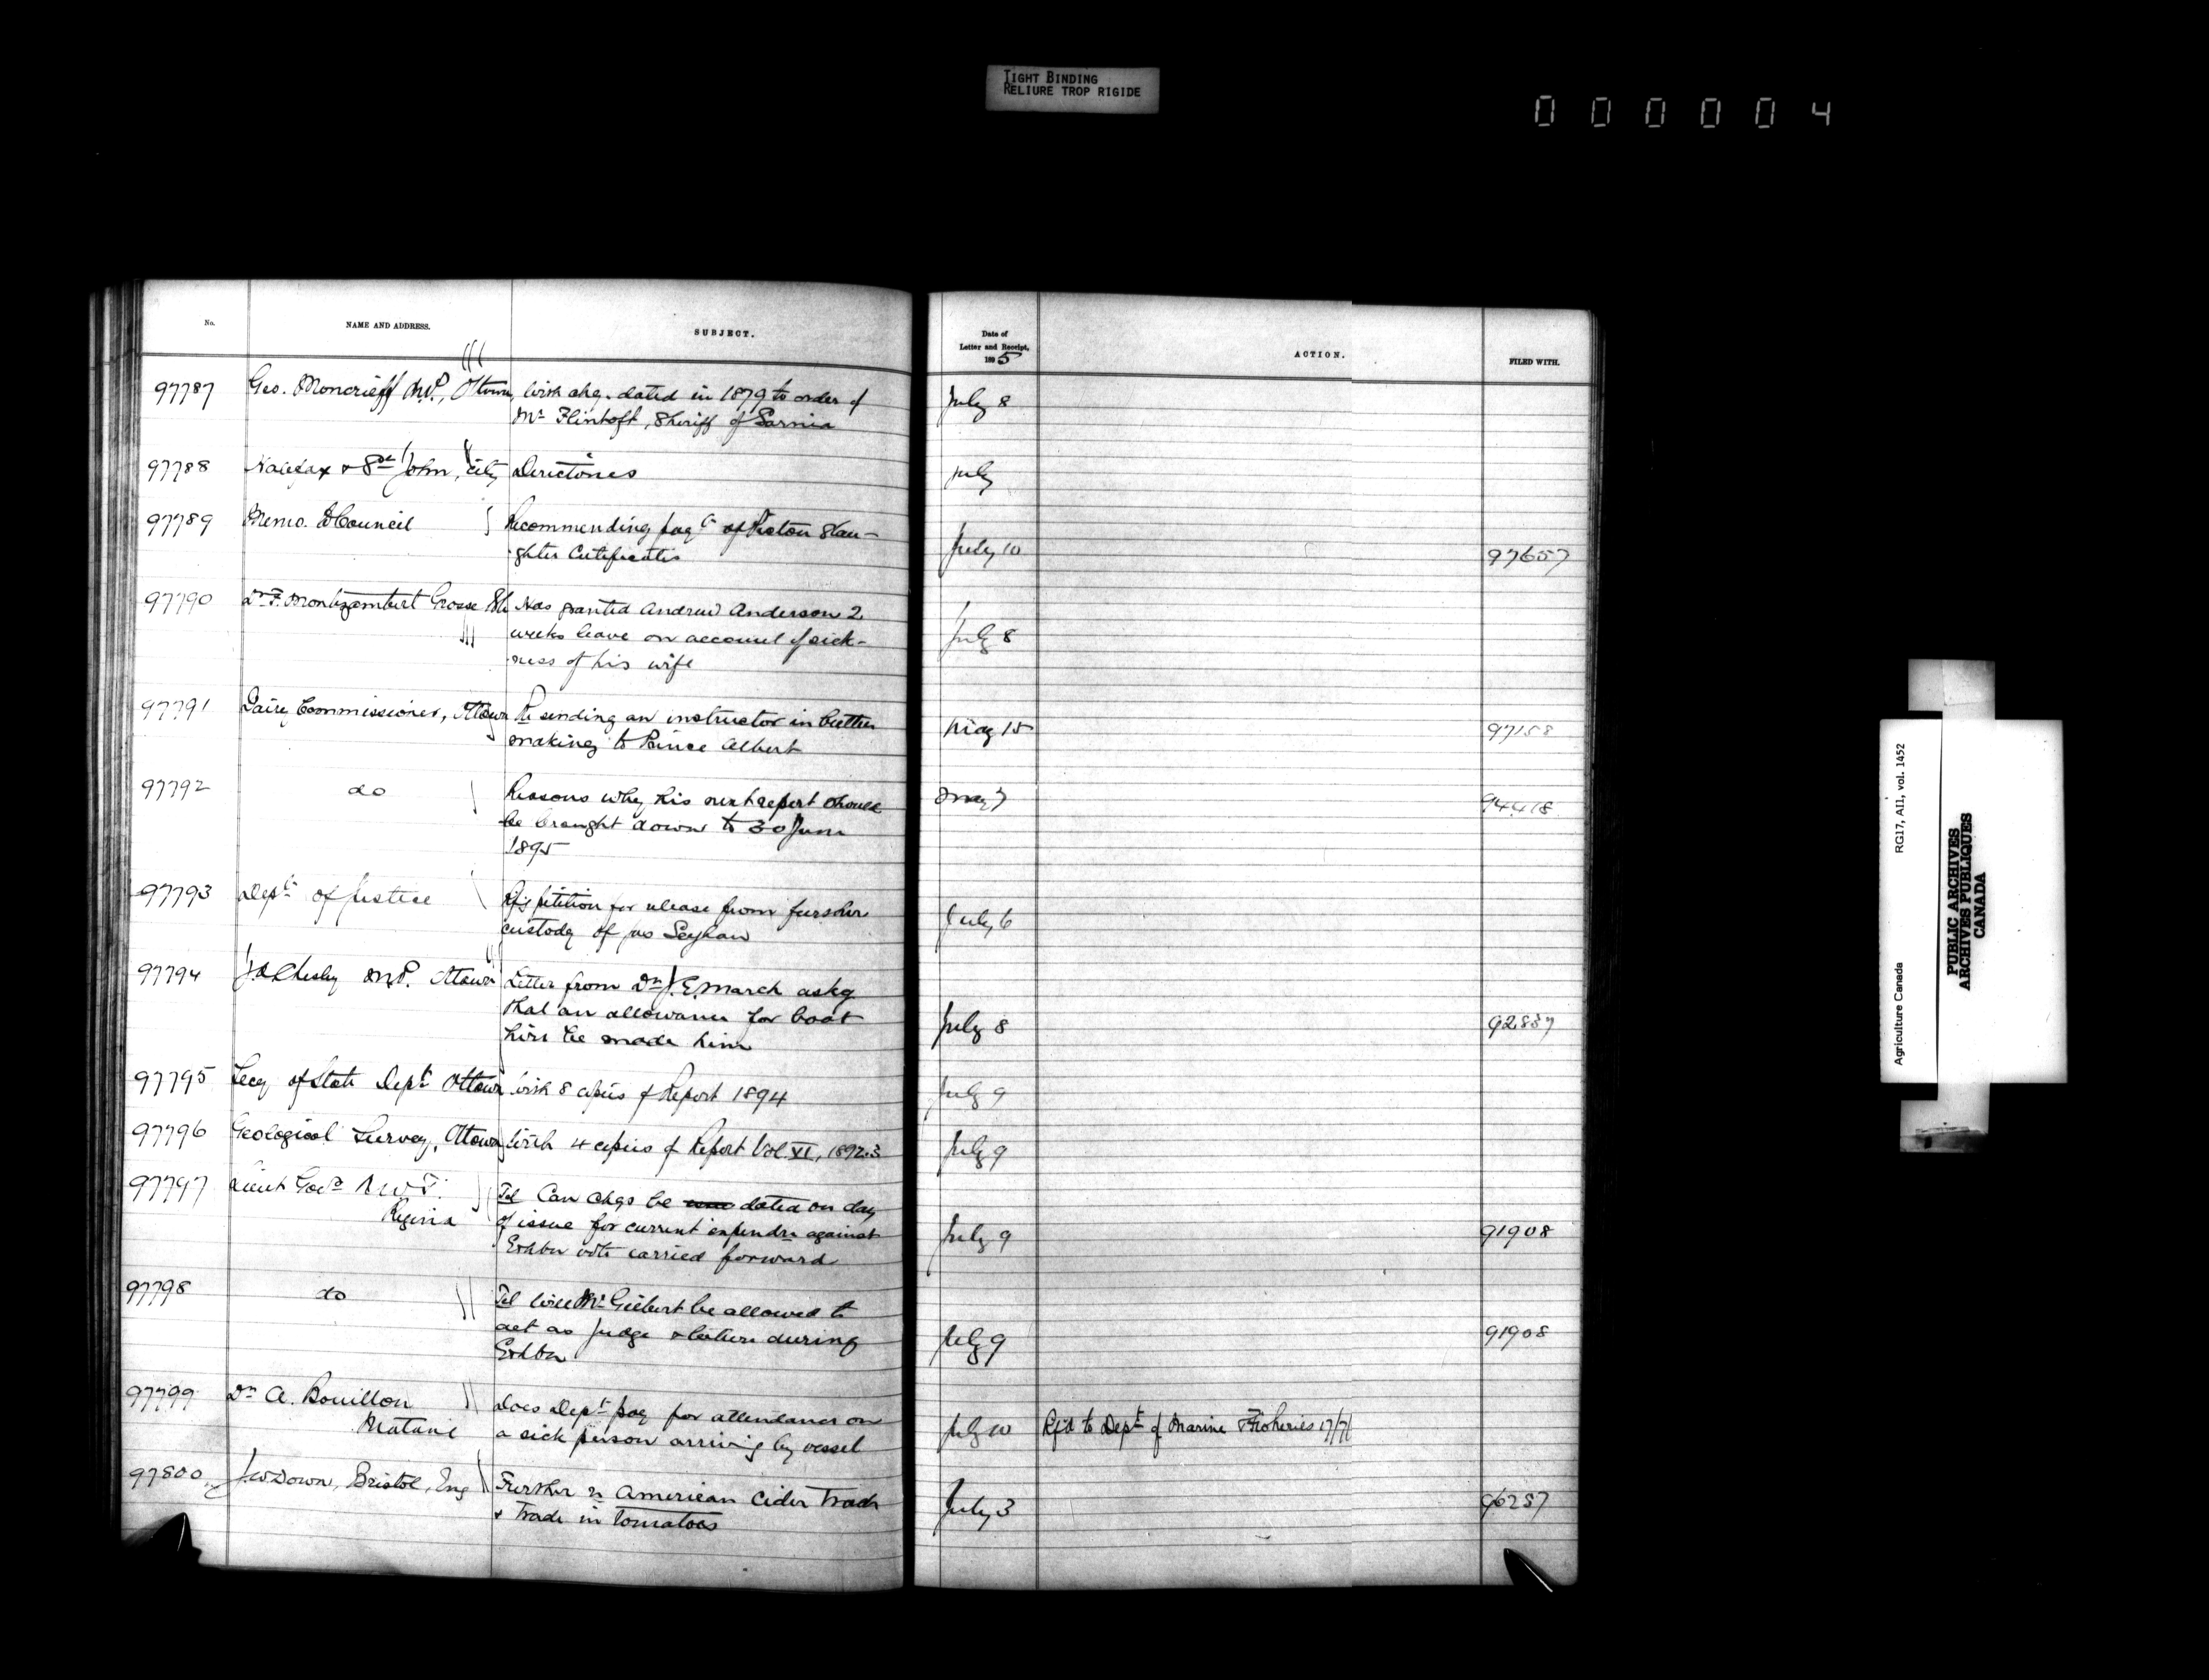 TIGHT BINDING
RELIURE TROP RIGIDE
000004
No. NAME AND ADDRESS. SUBJECT. Date of Letter and Receipt, 1895 ACTION. FILED WITH.
97787 Geo. Moncrieff M.P., Ottawa, With chq. dated in 1879 to order of July 8
Mr Flintoft, Sheriff of Sarnia
97788 Halifax & St John, City Directories July
97789 Memo. to Council Recommending payt of Pictou Slau- July 10 97657
ghter Certificates
97790 Dr F. Montizambert Grosse Isle Has granted Andrew Anderson 2 July 8
weeks leave on account of sick-
ness of his wife
97791 Dairy Commissioner, Ottawa Re sending an instructor in butter May 15 97158
making to Prince Albert
97792 do Reasons why his next report should May 7 94418
be brought down to 30 June
1895
97793 Dept of Justice petition for release from further July 6
custody of Jas
97794 Chesley M.P. Ottawa Letter from Dr J. E. March askg July 8 92837
that an allowance for boat
hire be made him
97795 Secy of State Dept Ottawa With 8 copies of Report 1894 July 9
97796 Geological Survey, Ottawa With 4 copies of Report Vol. VI, 1892.3 July 9
97797 Lieut Govr N W T. Tel Can chqs be dated on day July 9 91908
Regina of issue for current expendre against
Exhbn vote carried forward
97798 do Tel Will Mr Gilbert be allowed to July 9 91908
act as judge & lecture during
Exhbn
97799 Dr A. Bouillon Does Dept pay for attendance on July 10 Rfd to Dept of Marine & Fisheries 17/7/
Matane a sick person arriving by vessel
97800 J. W Down, Bristol, Eng Further re American Cider Trade July 3 96257
& Trade in tomatoes
Agriculture Canada RG17, AII, vol. 1452
PUBLIC ARCHIVES
ARCHIVES PUBLIQUES
CANADA